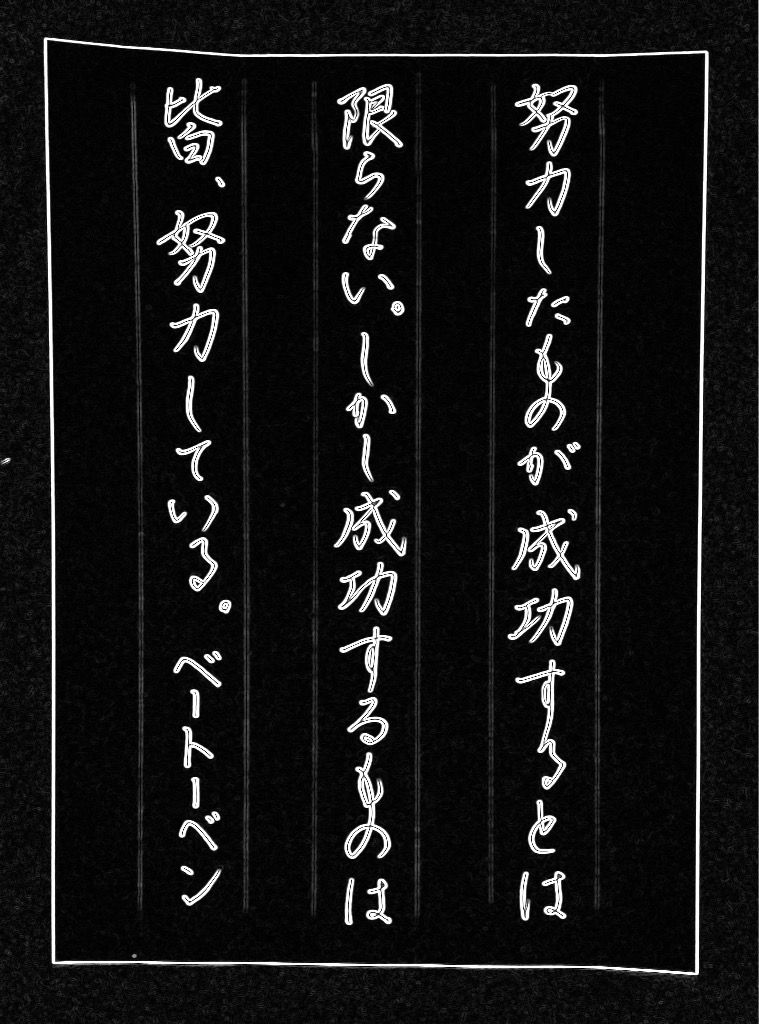 努力したものが成功するとは
限らない。しかし成功するものは
皆、努力している。 ベートーベン